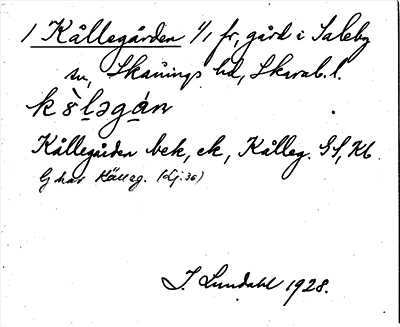 1 Kållegården 1/1 fr, gård i Saleby
sn, Skånings hd, Skarab. l.
Kållegården bek, ek, Kålleg. GS, Kb
Ej har Kålleg. (dj. 36)
I. Lundahl 1928.